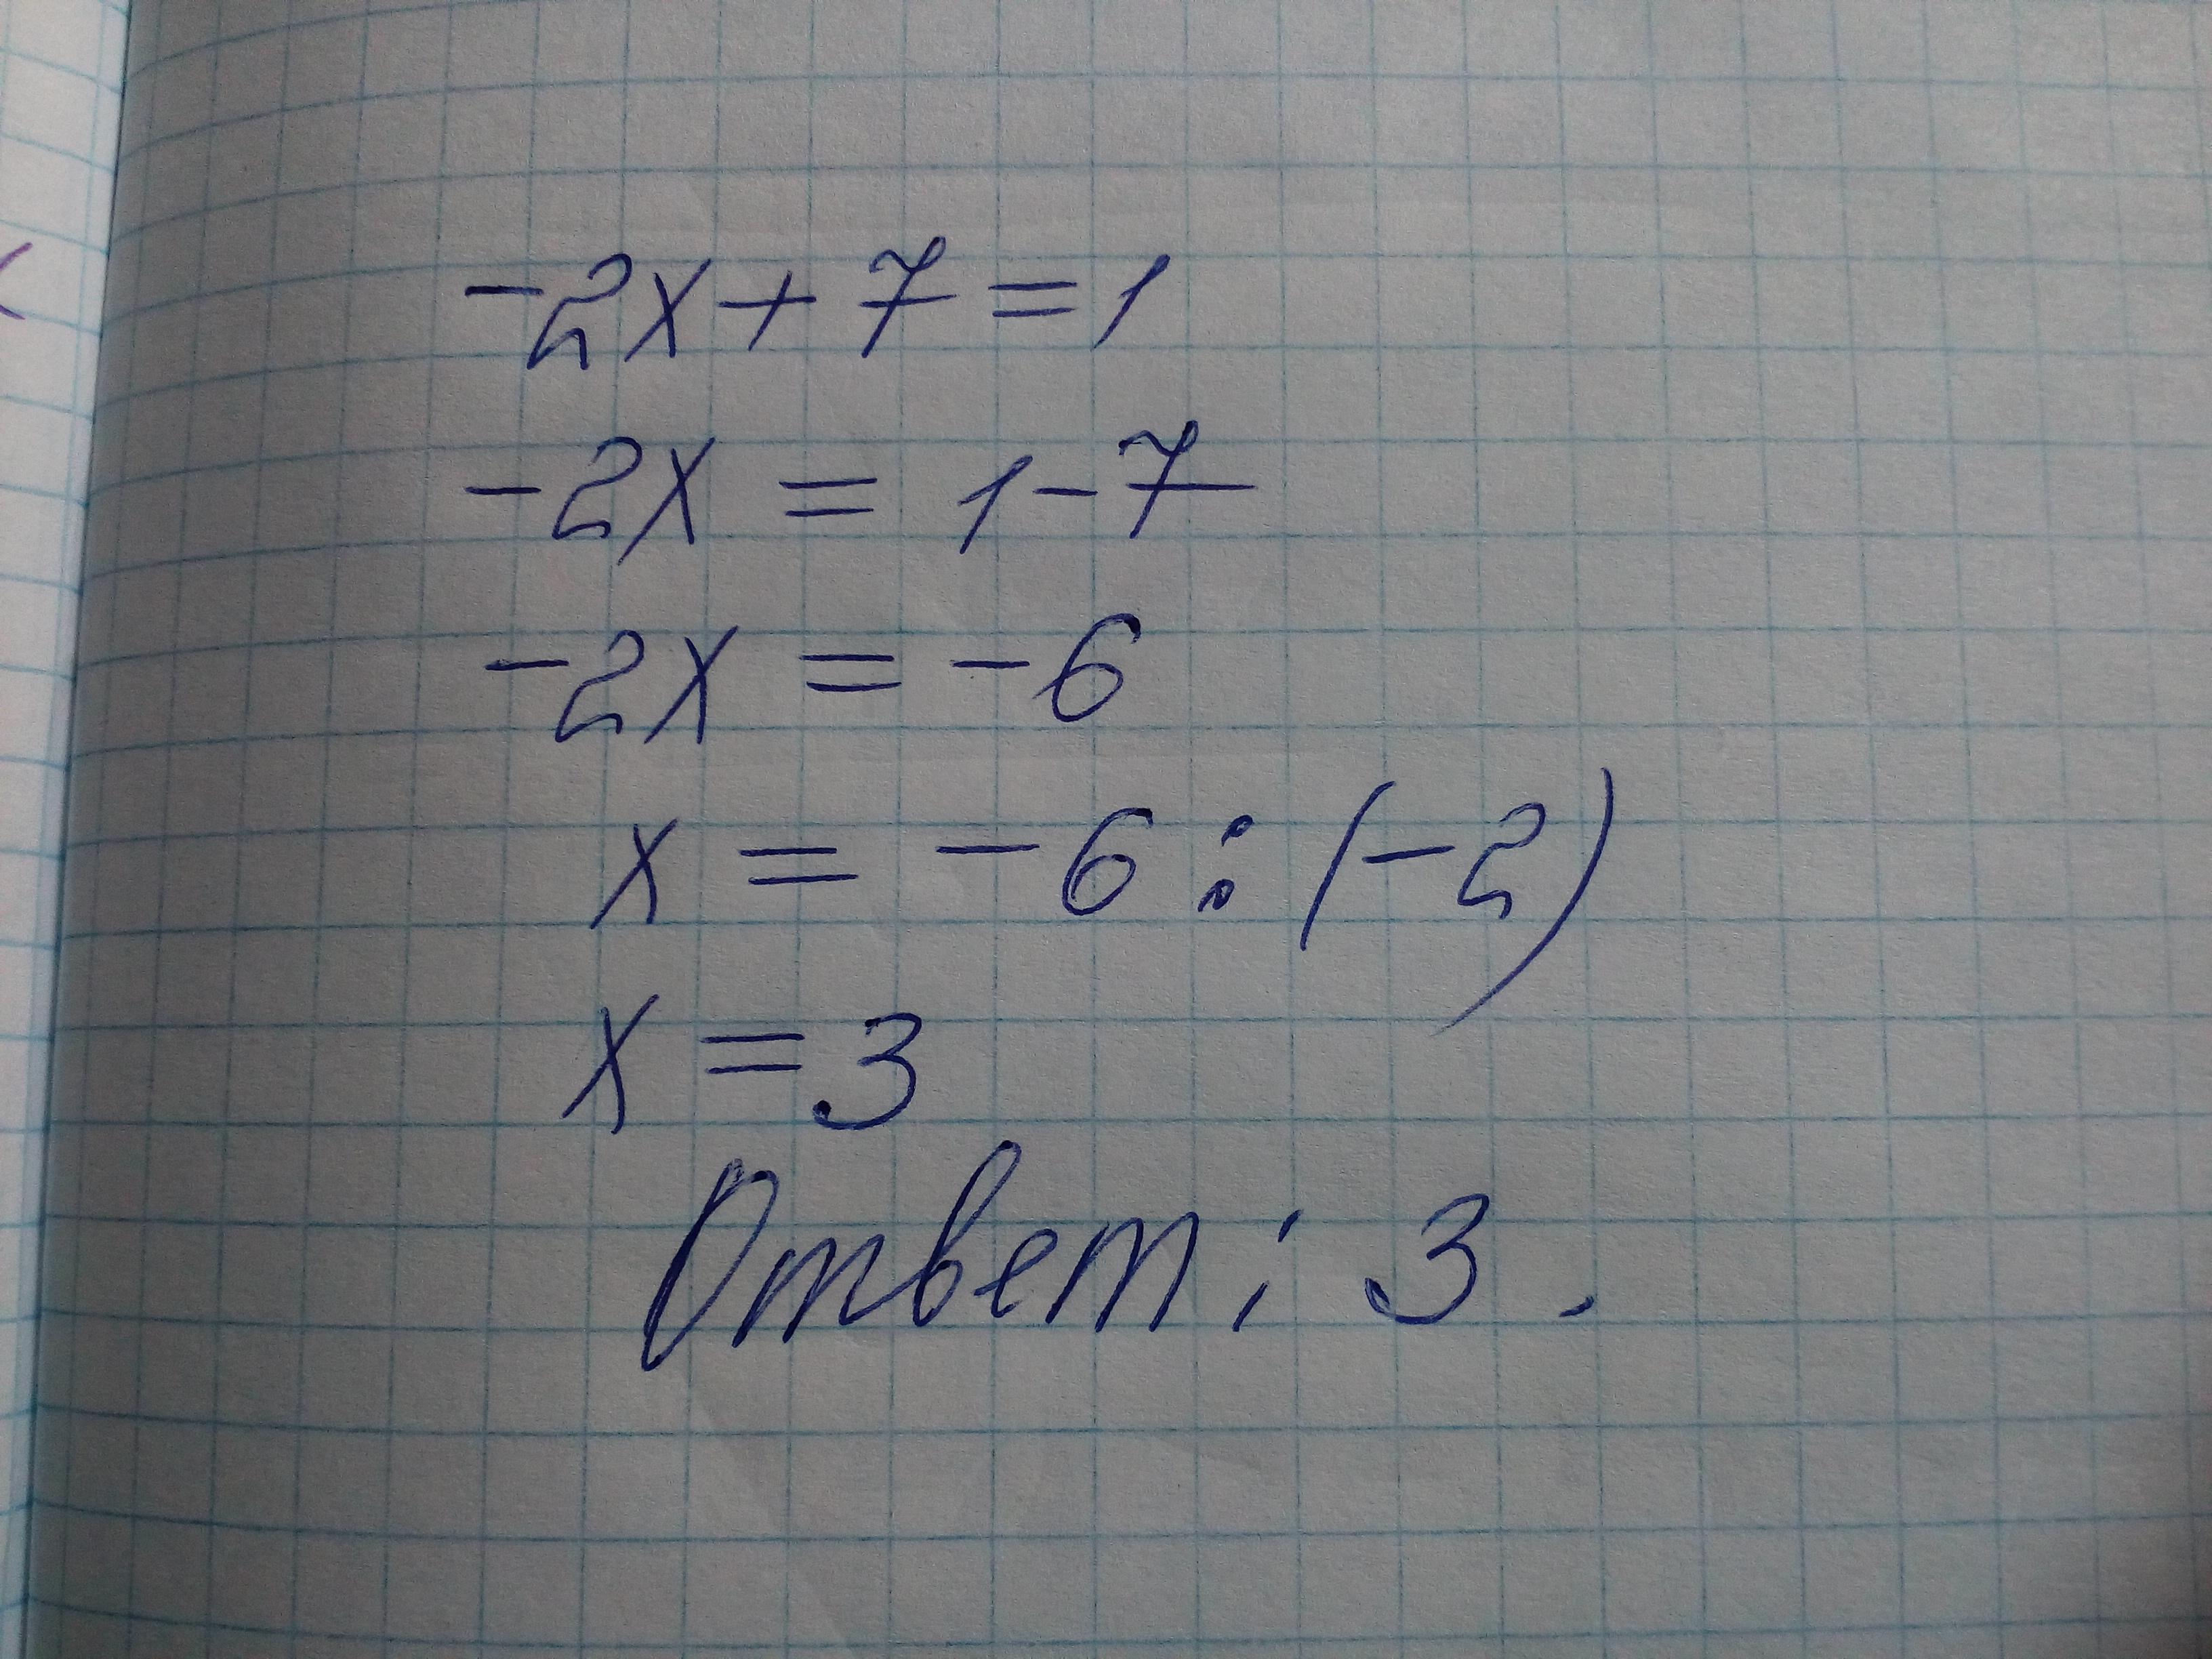 -2x+7=1
-2x = 1-7
-2x = -6
x = -6:(-2)
x=3
Ответ: 3.